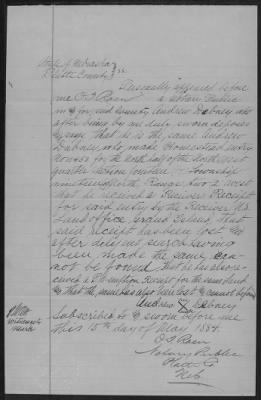 State of Nebraska } ss
Platte County
Personally appeared before
me O T Roen a Notary Public
in & for said County Andrew Dabney who
after being by me duly sworn deposes
& says that he is the same Andrew
Dabney who made Homestead entry
for the North half of the Northwest
quarter Section fourteen Township
nineteen North Range two 2 West
that he received a Receivers Receipt
for said entry by the Receiver of
Land office, Grand Island, that
said receipt has been lost &
after diligent search having
been made the same can-
not be found, that he has also re-
ceived a Pre-emption Receipt for the same land
& that the same has also been lost & cannot be found
Andrew Dabney
witness to
mark
Subscribed to & sworn before me
this 15th day of May 1884.
O T Roen
Notary Public
Platte Co
Neb